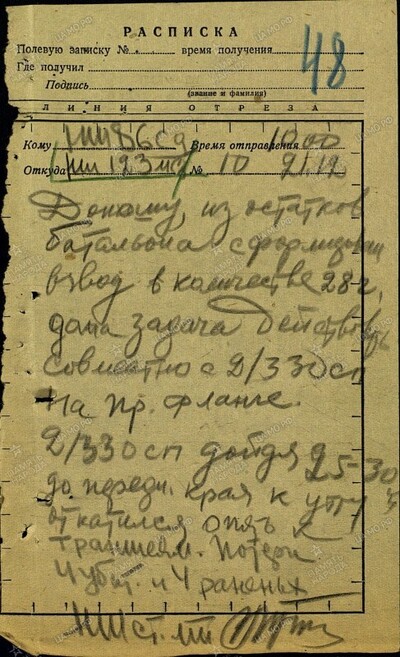 РАСПИСКА
48
Полевую записку № время получения
Где получил
Подпись
(звание и фамилия)
ЛИНИЯ ОТРЕЗА
Кому НШ 86 сд Время отправления 10 00
Откуда НШ 123 № 10 21.12
Доношу, из остатков
батальона сформирован
взвод в количестве 28 ч,
дана задача действовать
совместно с 2/330 сп
на пр. фланге.
2/330 сп дойдя
до передн. края к утру
откатился опять к
траншеям. Потери
4 убит. и 4 раненых
НШ ст. л-т